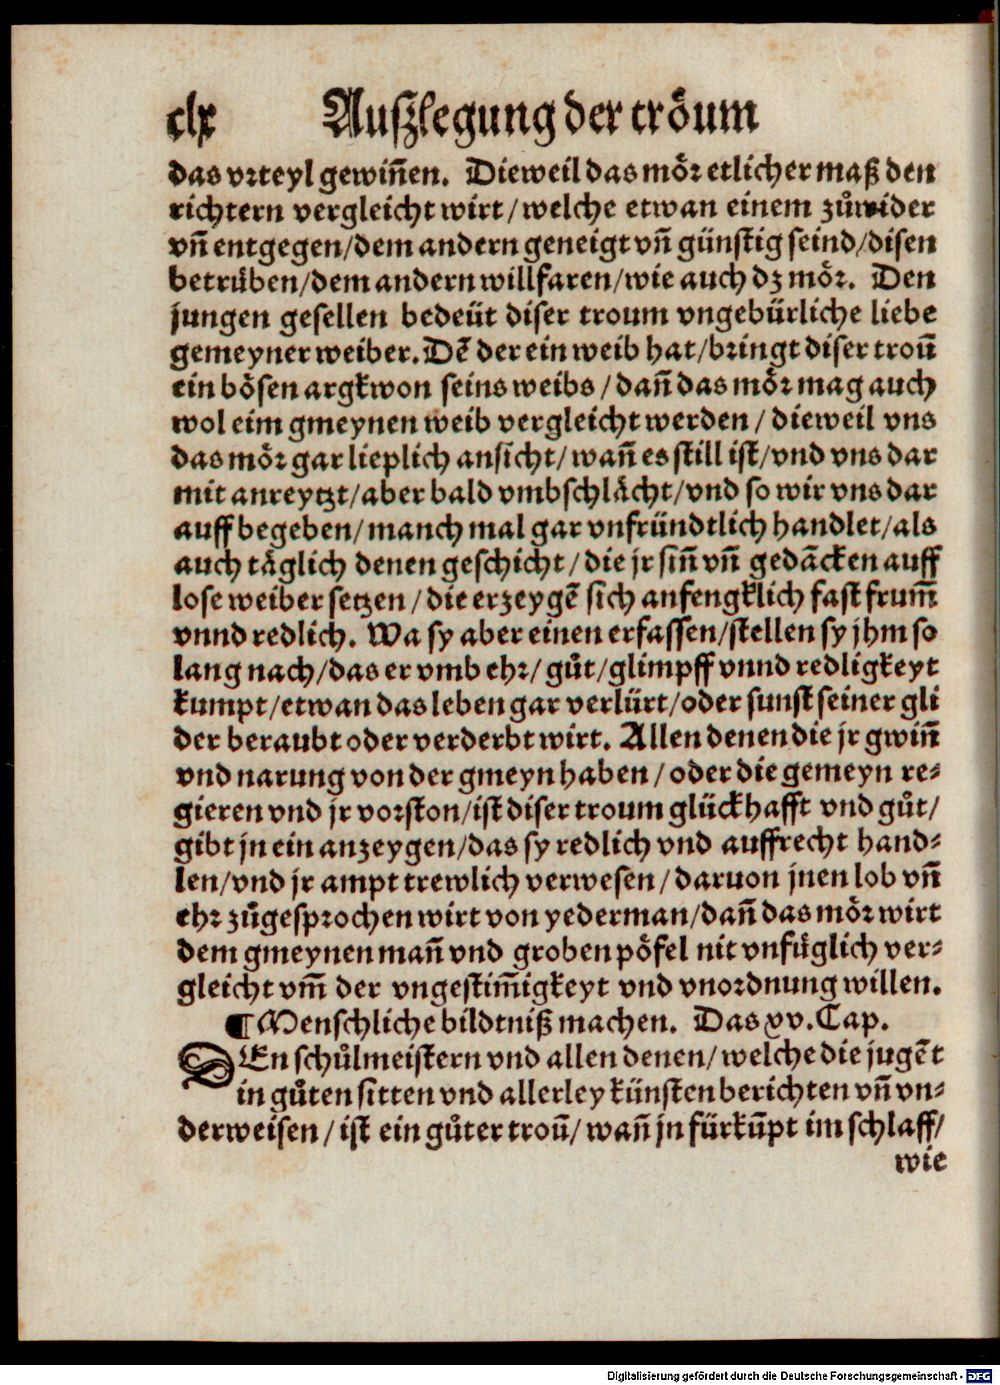 clx Auſzlegung der tröum
das vꝛteyl gewiñen. Dieweil das möꝛ etlicher maß den
richtern vergleicht wirt/welche etwan einem zůwider
vñ entgegen/dem andern geneigt vñ günſtig ſeind/diſen
betrüben/dem andern willfaren/wie auch dz möꝛ. Den
jungen geſellen bedeüt diſer troum vngebürliche liebe
gemeyner weiber. Dẽ der ein weib hat/bꝛingt diſer troũ
ein böſen argkwon ſeins weibs/dañ das möꝛ mag auch
wol eim gmeynen weib vergleicht werden/dieweil vns
das möꝛ gar lieplich anſicht/wañ es ſtill iſt/vnd vns dar
mit anreytzt/aber bald vmbſchlächt/vnd ſo wir vns dar
auff begeben/manch mal gar vnfründtlich handlet/als
auch täglich denen geſchicht/die jr ſiñ vñ gedãcken auff
loſe weiber ſetzen/die erzeygẽ ſich anfengklich faſt frum̃
vnnd redlich. Wa ſy aber einen erfaſſen/ſtellen ſy jhm ſo
lang nach/das er vmb ehꝛ/gůt/glimpff vnnd redligkeyt
kumpt/etwan das leben gar verlürt/oder ſunſt ſeiner gli
der beraubt oder verderbt wirt. Allen denen die jr gwiñ
vnd narung von der gmeyn haben/oder die gemeyn re⸗
gieren vnd jr voꝛſton/iſt diſer troum glückhafft vnd gůt/
gibt jn ein anzeygen/das ſy redlich vnd auffrecht hand⸗
len/vnd jr ampt trewlich verweſen/daruon jnen lob vñ
ehꝛ zůgeſpꝛochen wirt von yederman/dañ das möꝛ wirt
dem gmeynen mañ vnd groben pöfel nit vnfüglich ver⸗
gleicht vm̃ der vngeſtim̃igkeyt vnd vnoꝛdnung willen.
¶ Menſchliche bildtniß machen. Das xv. Cap.
DEn ſchůlmeiſtern vnd allen denen/welche die jugẽt
in gůten ſitten vnd allerley künſten berichten vñ vn⸗
derweiſen/iſt ein gůter troũ/wañ jn fürkũpt im ſchlaff/
wie
Digitalisierung gefördert durch die Deutsche Forschungsgemeinschaft - DFG